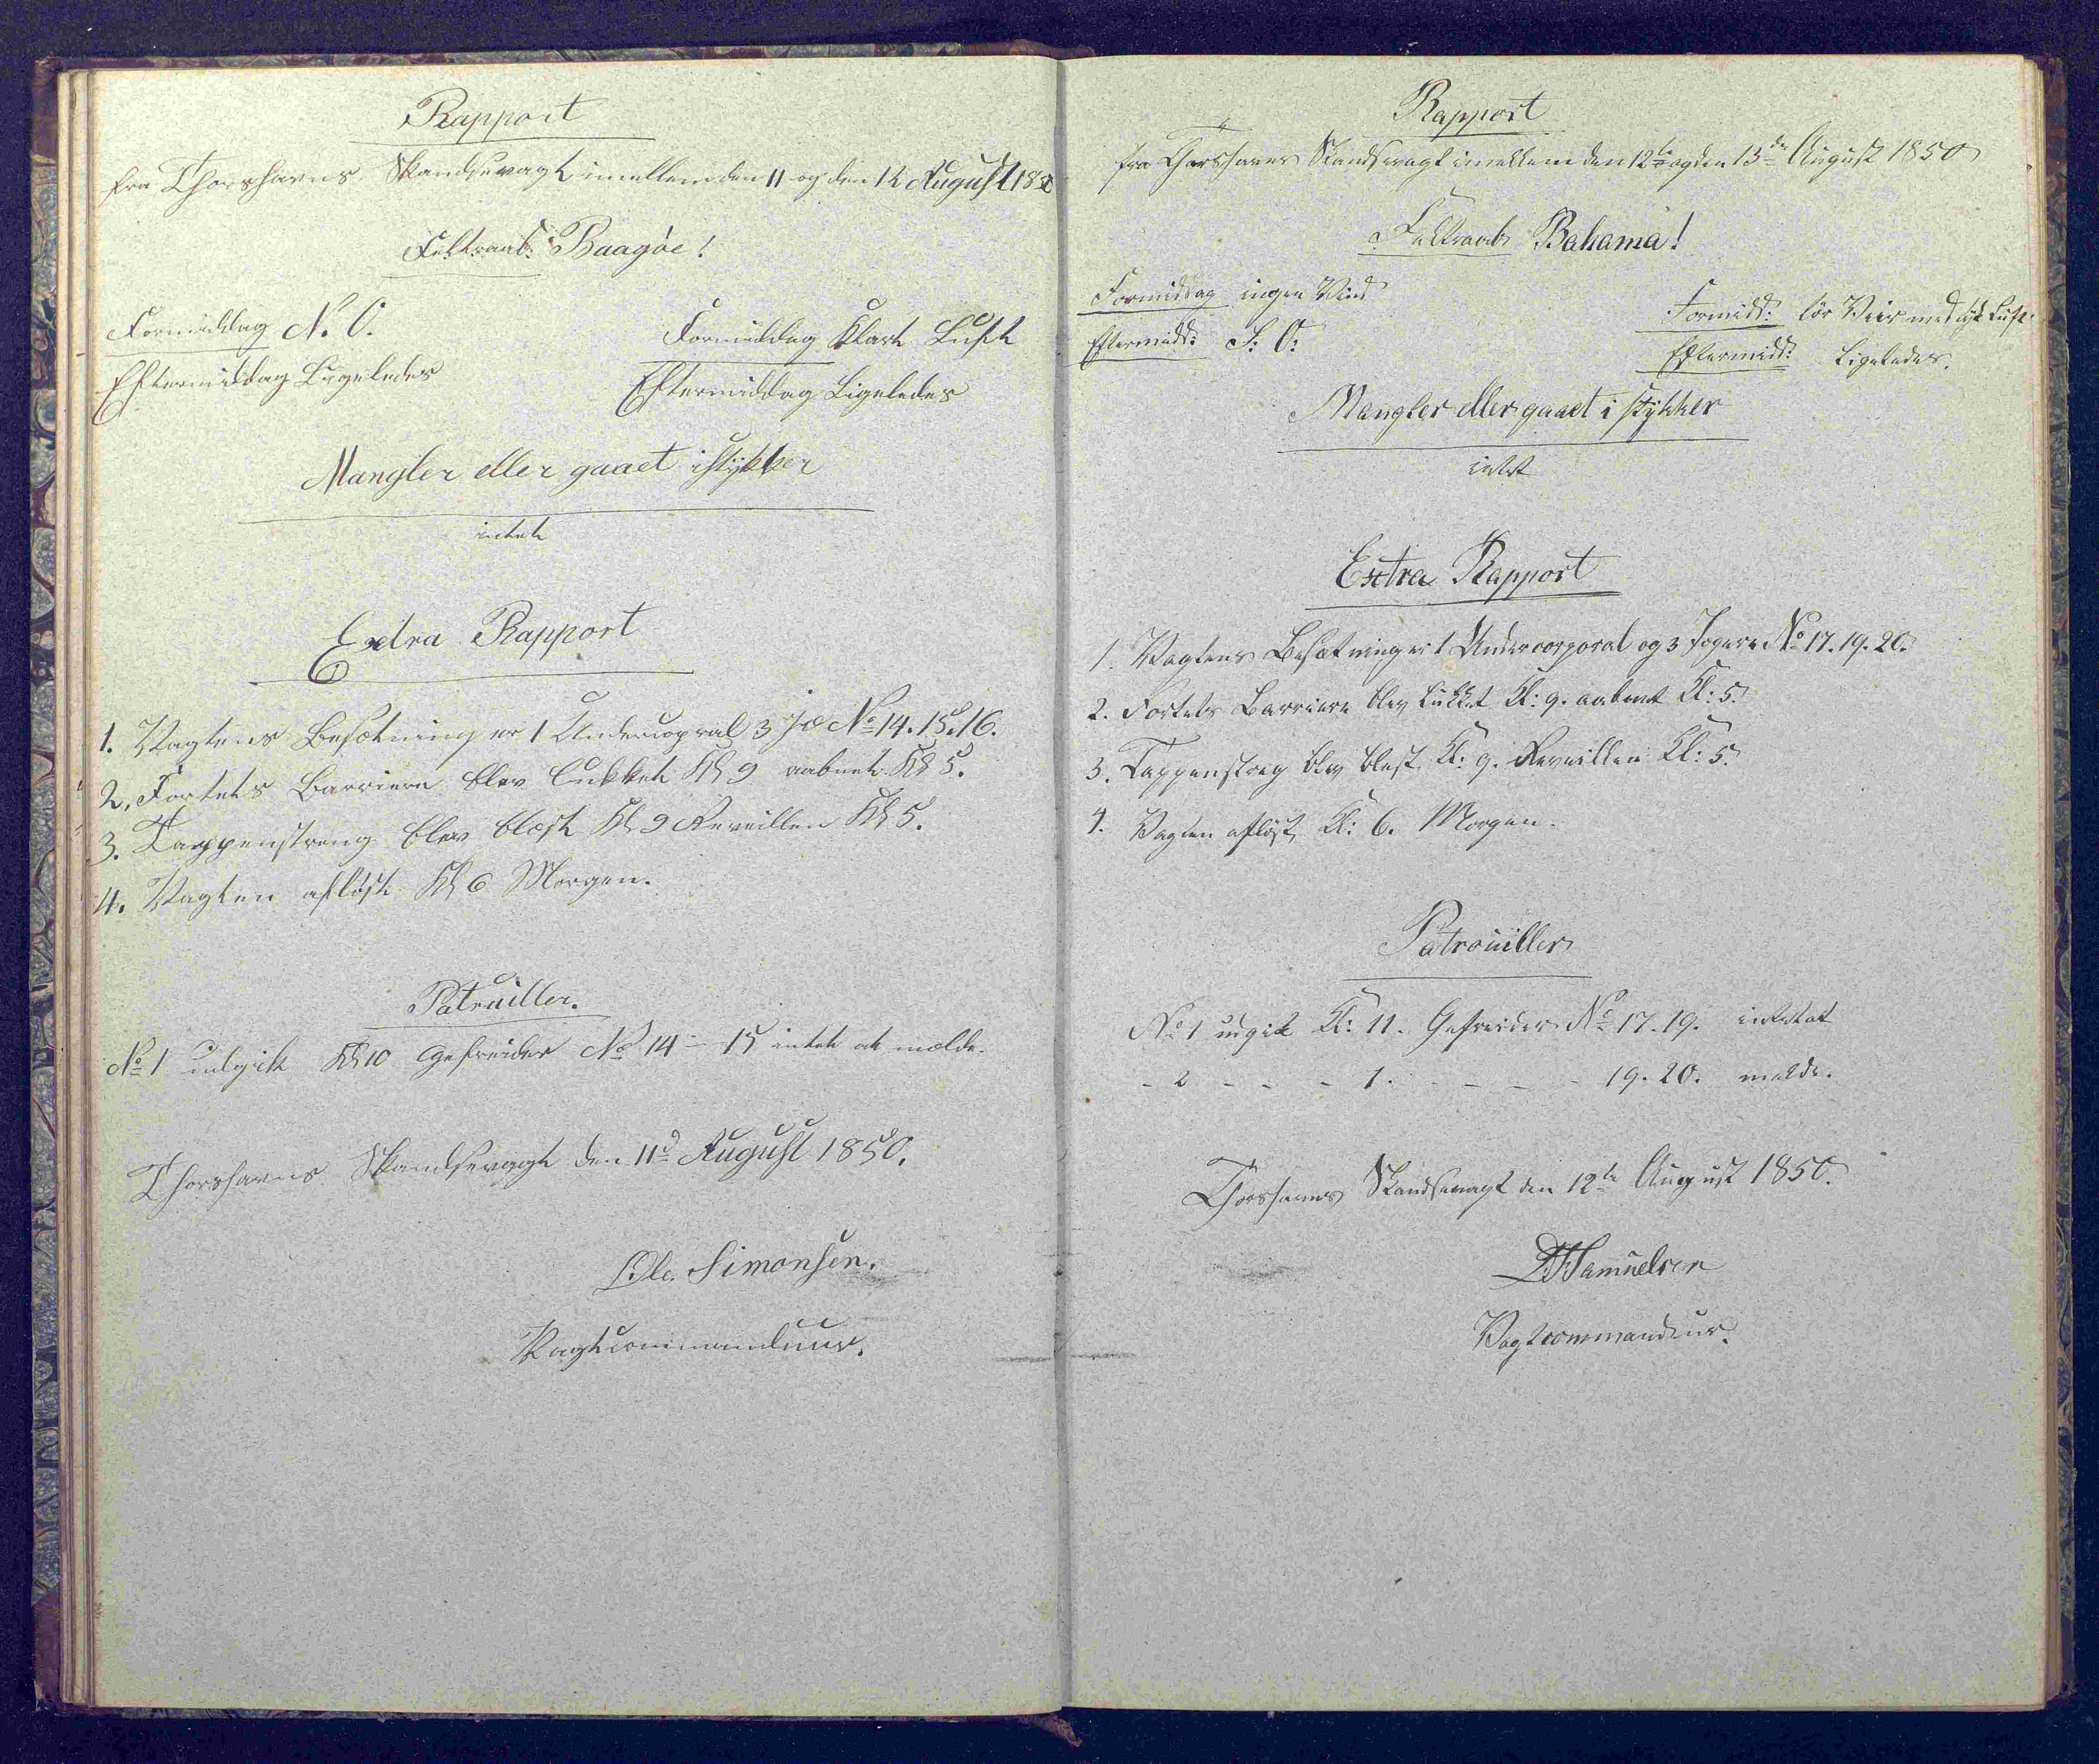 Rapport
fra Thorshavns Skandsevagt imellem den 11 og den 12 August 1850
Feltraab: Baagøe!
Formiddag N. O.
Eftermiddag Ligeledes
Formiddag Klart Luft
Eftermiddag Ligeledes
Mangler eller gaaet istykker
intet
Extra Rapport
1. Vagtens Besætning er 1 Undercopral 3 Jæ No 14. 15. 16.
2. Fortets Barriere blev lukket Kl 9 aabnet Kl 5.
3. Tappenstreng blev blæst Kl 9 Reveillen Kl 5.
4. Vagten afløst Kl 6 Morgen.
Patruiller.
No 1 udgik Kl 10 Gefreider No 14 - 15 intet at melde.
Thorshavns Skandsevagt den 11d August 1850.
Ole Simonsen.
Vagtcommandeur.
Rapport
fra Thorshavns Skandsevagt imellem den 12te og den 13de August 1850
Feltraab Bahama!
Formiddag ingen Vind
Eftermidd: S: O:
Formidd: tør Veir med tyk Luft
Eftermidd: Ligeledes.
Mangler eller gaaet i stykker
intet
Extra Rapport
1. Vagtens Besætning er 1 Undercorporal og 3 Jægere No 17. 19. 20.
2. Fortets Barriere blev lukket Kl: 9. aabnet Kl: 5.
3. Tappenstreg blev blæst Kl: 9. Reveillen Kl: 5.
4. Vagten afløst Kl: 6. Morgen.
Patrouiller
No 1 udgik Kl: 11. Gefreider No 17. 19. intet at
- 2 - - - 1. - - - - 19. 20. melde.
Thorshavns Skandsevagt den 12te August 1850.
Samuelsen
Vagtcommandeur.